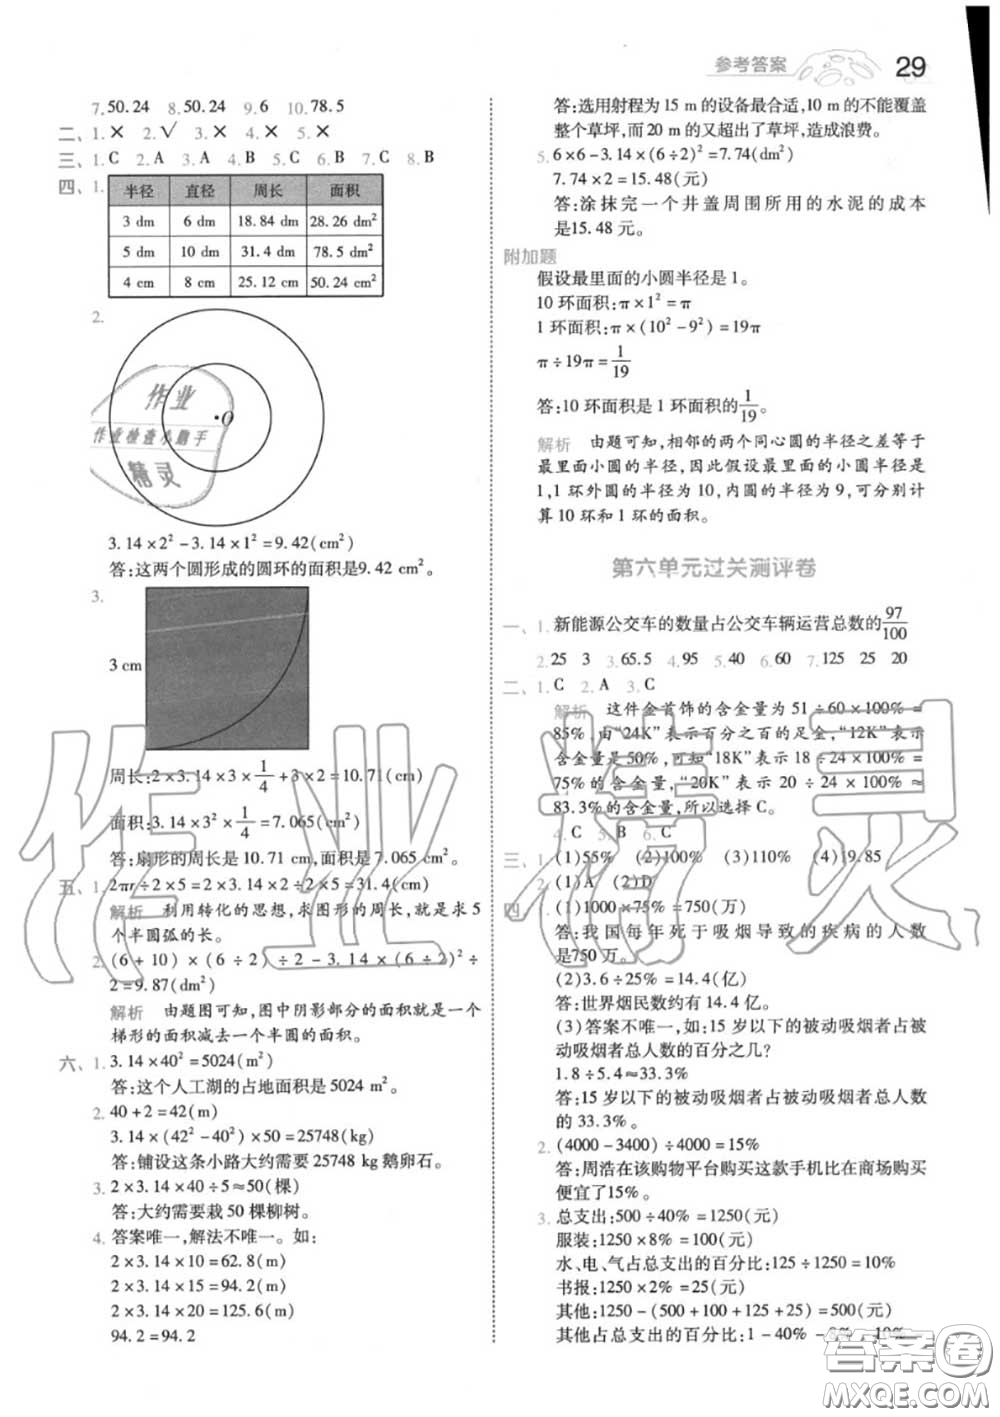 参考答案 29
7.50.24 8.50.24 9.6 10.78.5
二、1.× 2.√ 3.× 4.× 5.×
三、1.C 2.A 3.A 4.B 5.C 6.B 7.C 8.B
四、1.
半径 直径 周长 面积
3 dm 6 dm 18.84 dm 28.26 dm²
5 dm 10 dm 31.4 dm 78.5 dm²
4 cm 8 cm 25.12 cm 50.24 cm²
2.
O
作业
作业检查小助手
精灵
3.14×2²-3.14×1²=9.42(cm²)
答:这两个圆形成的圆环的面积是9.42 cm²。
3.
3 cm
周长:2×3.14×3×1/4+3×2=10.71(cm)
面积:3.14×3²×1/4=7.065(cm²)
答:扇形的周长是10.71 cm,面积是7.065 cm²。
五、1. 2πr÷2×5=2×3.14×2÷2×5=31.4(cm)
解析 利用转化的思想,求图形的周长,就是求5
个半圆弧的长。
2. (6+10)×(6÷2)÷2-3.14×(6÷2)²÷
2=9.87(dm²)
解析 由题图可知,图中阴影部分的面积就是一个
梯形的面积减去一个半圆的面积。
六、1. 3.14×40²=5024(m²)
答:这个人工湖的占地面积是5024 m²。
2. 40+2=42(m)
3.14×(42²-40²)×50=25748(kg)
答:铺设这条小路大约需要25748 kg鹅卵石。
3. 2×3.14×40÷5≈50(棵)
答:大约需要栽50棵柳树。
4. 答案唯一,解法不唯一。如:
2×3.14×10=62.8(m)
2×3.14×15=94.2(m)
2×3.14×20=125.6(m)
94.2=94.2
答:选用射程为15 m的设备最合适,10 m的不能覆盖
整个草坪,而20 m的又超出了草坪,造成浪费。
5. 6×6-3.14×(6÷2)²=7.74(dm²)
7.74×2=15.48(元)
答:涂抹完一个井盖周围所用的水泥的成本
是15.48元。
附加题
假设最里面的小圆半径是1。
10环面积:π×1²=π
1环面积:π×(10²-9²)=19π
π÷19π=1/19
答:10环面积是1环面积的1/19。
解析 由题可知,相邻的两个同心圆的半径之差等于
最里面小圆的半径,因此假设最里面的小圆半径为
1,1环外圆的半径为10,内圆的半径为9,可分别计
算10环和1环的面积。
第六单元过关测评卷
一、1. 新能源公交车的数量占公交车辆运营总数的97/100
2.25 3 3.65.5 4.95 5.40 6.60 7.125 25 20
二、1.C 2.A 3.C
解析 这件金首饰的含金量为51÷60×100%=
85%,由“24K”表示百分之百的足金,“12K”表示
含金量是50%,可知“18K”表示18÷24×100%=
75%的含金量,“20K”表示20÷24×100%≈
83.3%的含金量,所以选择C。
4.C 5.B 6.C
三、1. (1)55% (2)100% (3)110% (4)19.85
2. (1)A (2)D
四、1. (1)1000×75%=750(万)
答:我国每年死于吸烟导致的疾病的人数
是750万。
(2)3.6÷25%=14.4(亿)
答:世界烟民数约有14.4亿。
(3)答案不唯一,如:15岁以下的被动吸烟者占被
动吸烟者总人数的百分之几?
1.8÷5.4≈33.3%
答:15岁以下的被动吸烟者占被动吸烟者总人数
的33.3%。
2. (4000-3400)÷4000=15%
答:周浩在该购物平台购买这款手机比在商场购买
便宜了15%。
3. 总支出:500÷40%=1250(元)
服装:1250×8%=100(元)
水、电、气占总支出的百分比:125÷1250=10%
书报:1250×2%=25(元)
其他:1250-(500+100+125+25)=500(元)
其他占总支出的百分比:1-40%-8%-10%-
作业精灵
答案圈
MXQE.COM